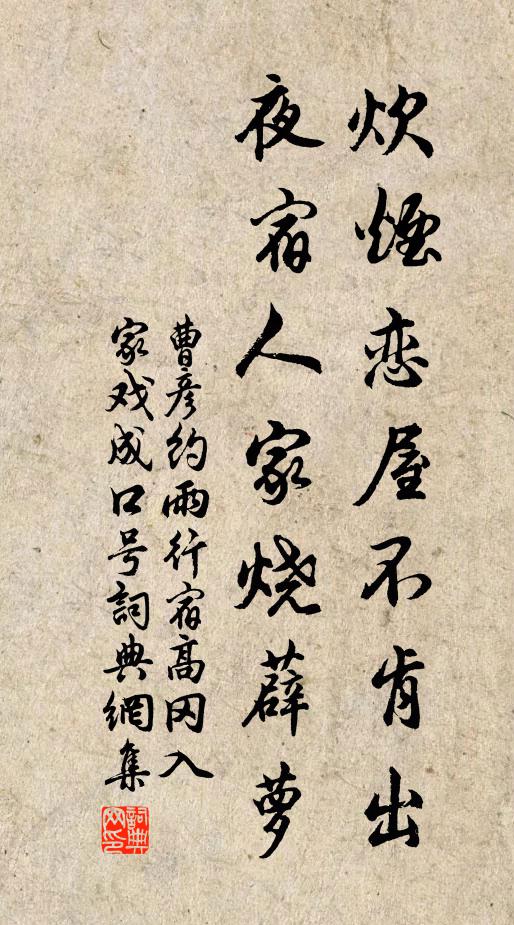 炊煙恋屋不肯出
夜宿人家烧薜萝
曹彦约雨行宿高冈入
家戏成口号詞典網集
詞典网印